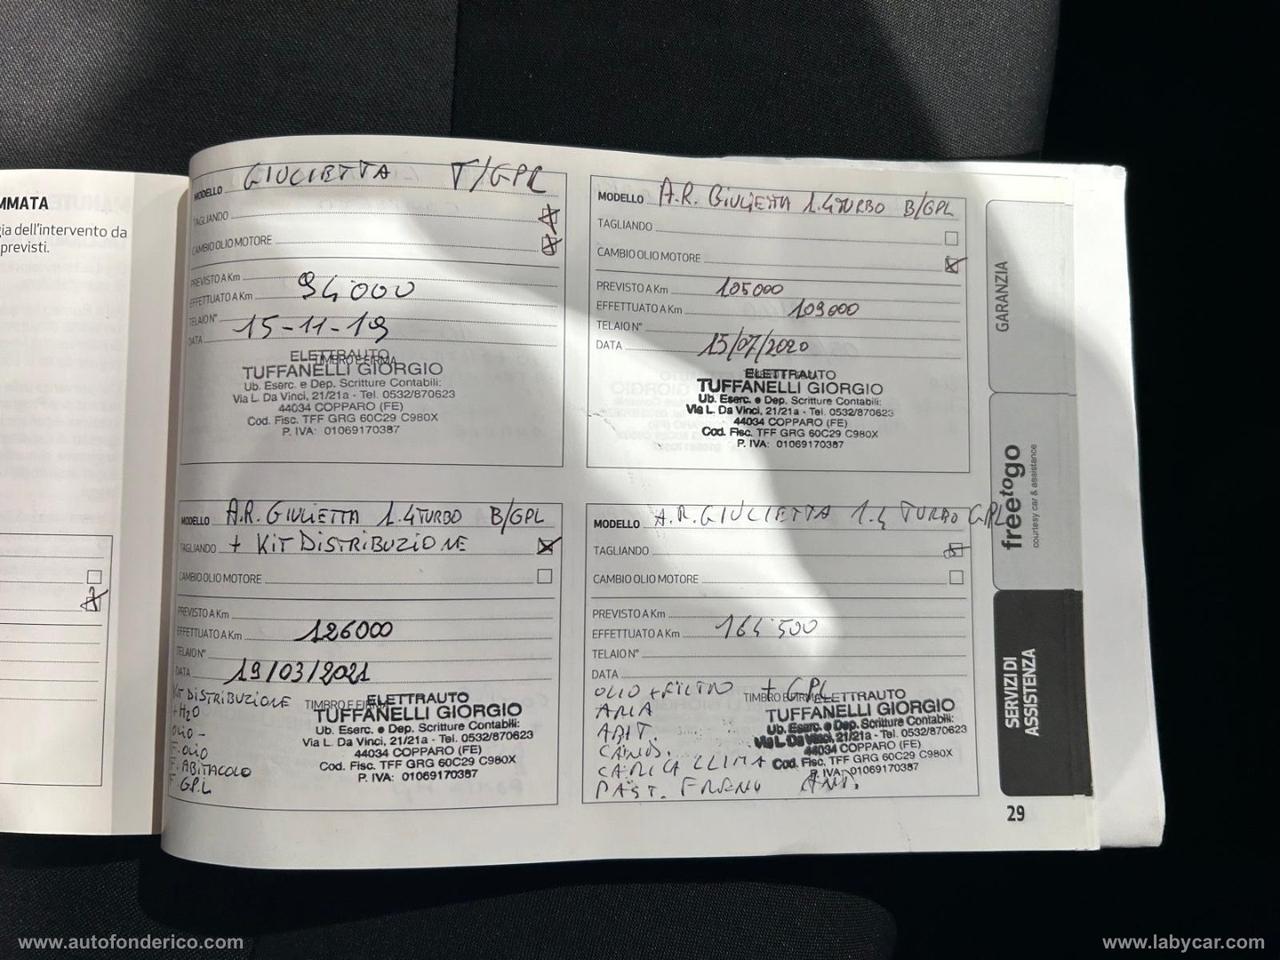 MMATA
gia dell'intervento da
previsti.
MODELLO GIULIETTA T/GPL
TAGLIANDO
CAMBIO OLIO MOTORE
PREVISTO A Km
EFFETTUATO A Km 94000
TELAIO N°
DATA 15-11-19
TIMBRO E FIRMA
ELETTRAUTO
TUFFANELLI GIORGIO
Ub. Eserc. e Dep. Scritture Contabili:
Via L. Da Vinci, 21/21a - Tel. 0532/870623
44034 COPPARO (FE)
Cod. Fisc. TFF GRG 60C29 C980X
P. IVA: 01069170387
MODELLO A.R. GIULIETTA 1.4 TURBO B/GPL
TAGLIANDO
CAMBIO OLIO MOTORE
PREVISTO A Km 105000
EFFETTUATO A Km 109000
TELAIO N°
DATA 15/07/2020
ELETTRAUTO
TUFFANELLI GIORGIO
Ub. Eserc. e Dep. Scritture Contabili:
Via L. Da Vinci, 21/21a - Tel. 0532/870623
44034 COPPARO (FE)
Cod. Fisc. TFF GRG 60C29 C980X
P. IVA: 01069170387
MODELLO A.R. GIULIETTA 1.4 TURBO B/GPL
TAGLIANDO + KIT DISTRIBUZIONE
CAMBIO OLIO MOTORE
PREVISTO A Km
EFFETTUATO A Km 126000
TELAIO N°
DATA 19/03/2021
KIT DISTRIBUZIONE
+ H2O
OLIO -
F. OLIO
F. ABITACOLO
F GPL
TIMBRO E FIRMA
ELETTRAUTO
TUFFANELLI GIORGIO
Ub. Eserc. e Dep. Scritture Contabili:
Via L. Da Vinci, 21/21a - Tel. 0532/870623
44034 COPPARO (FE)
Cod. Fisc. TFF GRG 60C29 C980X
P. IVA: 01069170387
MODELLO A.R. GIULIETTA 1.4 TURBO GPL
TAGLIANDO
CAMBIO OLIO MOTORE
PREVISTO A Km
EFFETTUATO A Km 164500
TELAIO N°
DATA
OLIO + FILTRO + GPL
ARIA
ABIT.
CARICA CLIMA
PAST. FRENO ANT.
TIMBRO E FIRMA
ELETTRAUTO
TUFFANELLI GIORGIO
Ub. Eserc. e Dep. Scritture Contabili:
Via L. Da Vinci, 21/21a - Tel. 0532/870623
44034 COPPARO (FE)
Cod. Fisc. TFF GRG 60C29 C980X
P. IVA: 01069170387
GARANZIA
freetogo
courtesy car & assistance
SERVIZI DI
ASSISTENZA
29
www.autofonderico.com
www.labycar.com